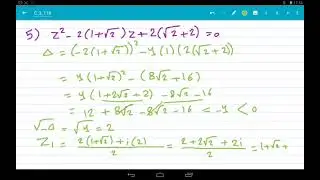 5) z² - 2(1+√2)z + 2(√2+2) = 0
Δ = (-2(1+√2))² - 4(1)(2(√2+2))
= 4(1+√2)² - (8√2+16)
= 4(1+2√2+2) - 8√2-16
= 12 + 8√2 - 8√2 - 16 = -4 < 0
√-Δ = √4 = 2
Z₁ = 2(1+√2)+i(2) / 2 = 2+2√2+2i / 2 = 1+√2+